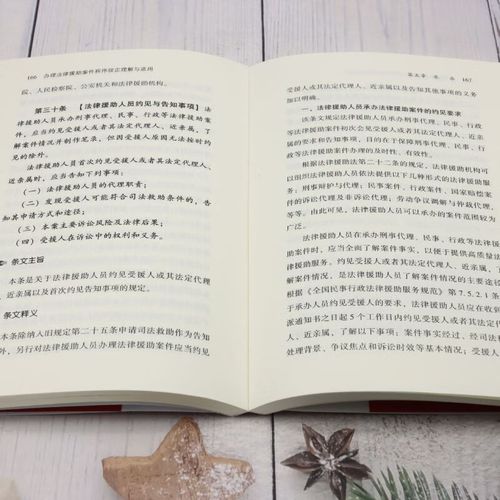 166 办理法律援助案件程序规定理解与适用
院、人民检察院、公安机关和法律援助机构。
第三十条 【法律援助人员约见与告知事项】法
律援助人员承办刑事代理、民事、行政等法律援助
案件，应当约见受援人或者其法定代理人、近亲属，了
解案件情况并制作笔录，但因受援人原因无法按时约
见的除外。
法律援助人员首次约见受援人或者其法定代理人、
近亲属时，应当告知下列事项：
（一）法律援助人员的代理职责；
（二）发现受援人可能符合司法救助条件的，告
知其申请方式和途径；
（三）本案主要诉讼风险及法律后果；
（四）受援人在诉讼中的权利和义务。
条文主旨
本条是关于法律援助人员约见受援人或其法定代理
、近亲属以及首次约见告知事项的规定。
条文释义
本条除纳入旧规定第二十五条申请司法救助作为告知
外，另行对法律援助人员办理法律援助案件应当约见
第五章 承 办 167
受援人或其法定代理人、近亲属以及告知其他事项的义务
加以明确。
一、法律援助人员承办法律援助案件的约见要求
该条文规定法律援助人员承办刑事代理、民事、行政
等法律援助案件初次会见受援人或者其法定代理人、近亲
属的要求和告知事项，目的在于保障刑事代理、民事、行
政等法律援助案件办理的及时性、有效性。
根据法律援助法第二十二条的规定，法律援助机构可
以组织法律援助人员依法提供以下几种形式的法律援助服
务：刑事辩护与代理；民事案件、行政案件、国家赔偿案
件的诉讼代理及非诉讼代理；劳动争议调解与仲裁代理，
等等。由此可见，法律援助人员可以承办的案件范围较为
广泛。
法律援助人员在承办刑事代理、民事、行政等法律援
助案件时，应当全面了解案件事实，以便于提供高质量法
律援助服务。约见受援人或者其法定代理人、近亲属，
解案件情况，是法律援助人员了解案件情况的主要途径
根据《全国民事行政法律援助服务规范》第 7.5.2.1 条
于承办人员约见受援人的要求，法律援助人员应在收到
派通知书之日起 5 个工作日内约见受援人或者其法定代
人、近亲属，了解以下事项：案件事实经过、经司法
处理背景、争议焦点和诉讼时效等基本情况；受援人